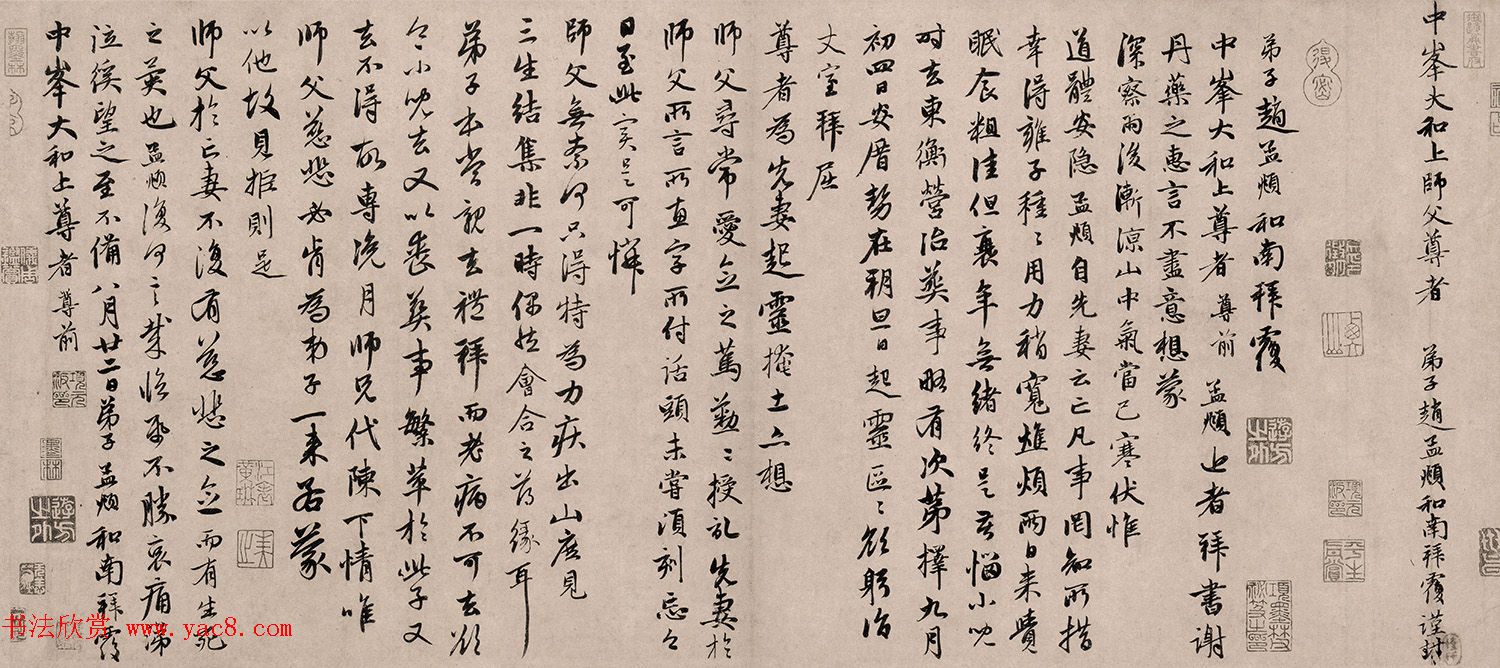 中峯大和上師父尊者 弟子趙孟頫和南拜覆謹封
弟子趙孟頫和南拜覆
中峯大和上尊者尊前 孟頫上者拜書謝
丹藥之惠言不盡意想蒙
深察雨後漸涼山中氣當已寒伏惟
道體安隱孟頫自先妻云亡凡事罔知所措
幸得雍子種〻用力稍寬燋煩兩日來
眠食粗佳但衰年無緒終是苦惱小兒
时去東衡營治葬事略有次第擇九月
初四日安厝勢在朔旦日起靈區〻欲躬詣
丈室拜屈
尊者為先妻起靈掩土亦想
師父尋常愛念之篤懃〻授記先妻於
師父所言所直字所付話頭未嘗頃刻忘今
日至此實是可憐
師父無柰何只得特為力疾出山庶見
三生結集非一時偶然會合之薄緣耳
弟子本當親去禮拜而老病不可去欲
令小兒去又以喪葬事繁萃於此子又
去不得故專浼月師兄代陳下情唯
師父慈悲必肯為弟子一來若蒙
以他故見拒則是
師父於亡妻不復有慈悲之念而有生死
之異也孟頫復何言哉臨紙不勝哀痛涕
泣徯望之至不備八月廿二日弟子孟頫和南拜覆
中峯大和上尊者尊前
书法欣赏 www.yac8.com